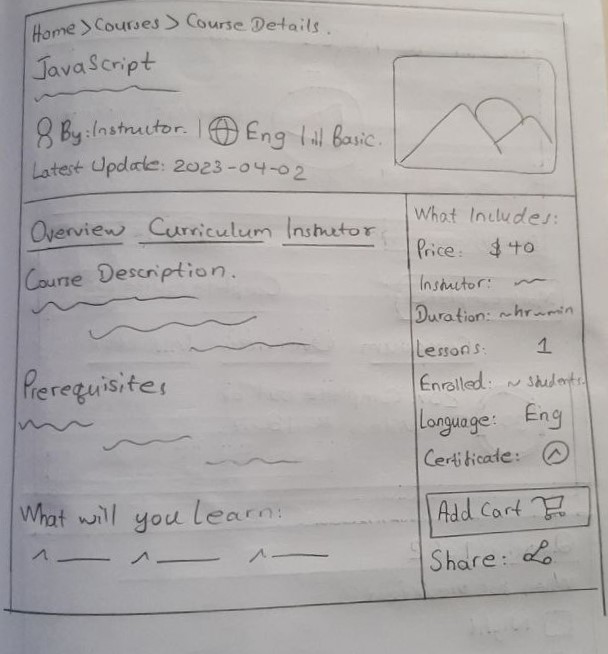 Home > Courses > Course Details.
JavaScript
By: Instructor. | Eng | Basic.
Latest Update: 2023-04-02
Overview Curriculum Instructor
Course Description.
Prerequisites
What will you Learn:
What Includes:
Price: $40
Instructor:
Duration: ~hr~min
Lessons: 1
Enrolled: ~ students.
Language: Eng
Certificate:
Add Cart
Share: